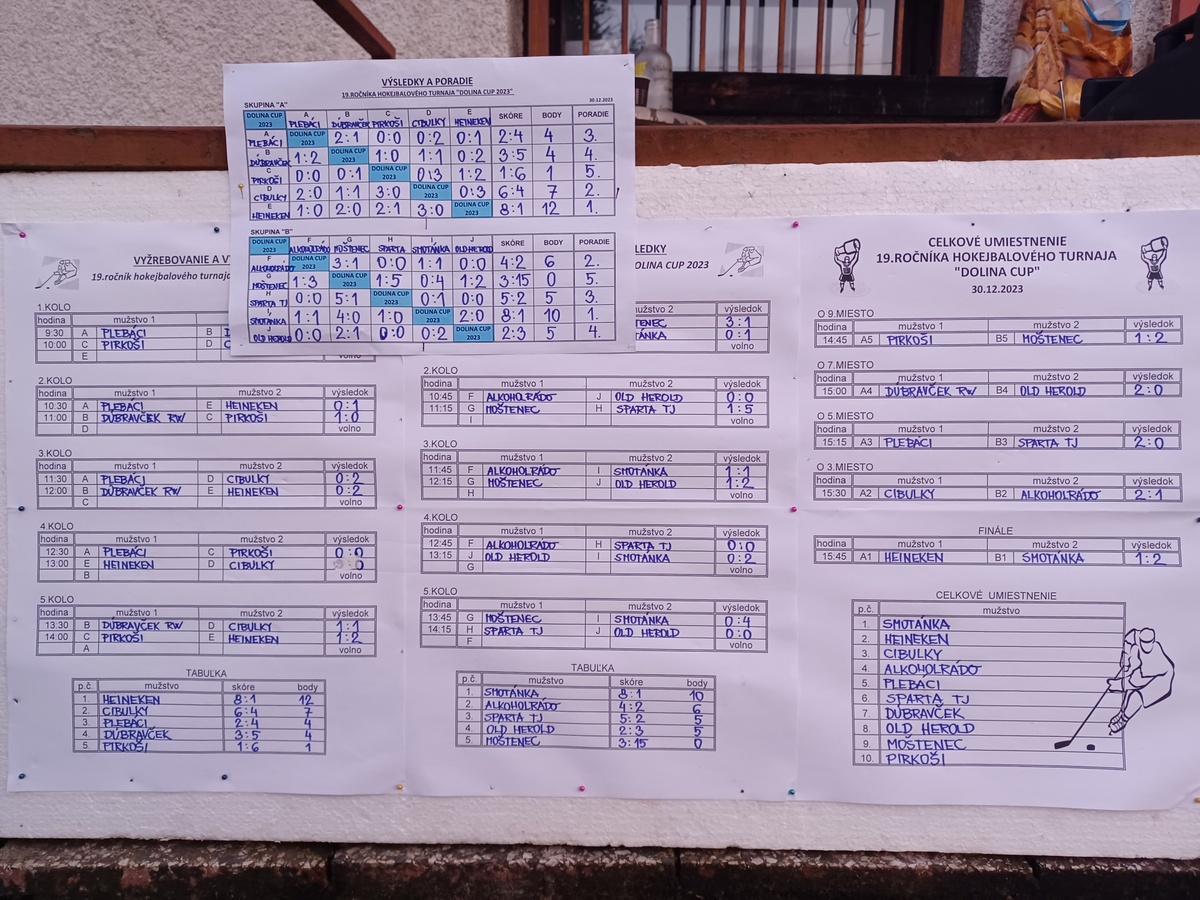 VÝSLEDKY A PORADIE
19.ROČNÍKA HOKEJBALOVÉHO TURNAJA "DOLINA CUP 2023"
30.12.2023
SKUPINA "A"
DOLINA CUP 2023 A PLEBÁCI B DÚBRAVČEK C PIRKOŠI D CIBULKY E HEINEKEN SKÓRE BODY PORADIE
A PLEBÁCI DOLINA CUP 2023 2:1 0:0 0:2 0:1 2:4 4 3.
B DÚBRAVČEK 1:2 DOLINA CUP 2023 1:0 1:1 0:2 3:5 4 4.
C PIRKOŠI 0:0 0:1 DOLINA CUP 2023 0:3 1:2 1:6 1 5.
D CIBULKY 2:0 1:1 3:0 DOLINA CUP 2023 0:3 6:4 7 2.
E HEINEKEN 1:0 2:0 2:1 3:0 DOLINA CUP 2023 8:1 12 1.
SKUPINA "B"
DOLINA CUP 2023 F ALKOHOLRÁDO G MOŠTENEC H SPARTA I SMOTÁNKA J OLD HEROLD SKÓRE BODY PORADIE
F ALKOHOLRÁDO DOLINA CUP 2023 3:1 0:0 1:1 0:0 4:2 6 2.
G MOŠTENEC 1:3 DOLINA CUP 2023 1:5 0:4 1:2 3:15 0 5.
H SPARTA TJ 0:0 5:1 DOLINA CUP 2023 0:1 0:0 5:2 5 3.
I SMOTÁNKA 1:1 4:0 1:0 DOLINA CUP 2023 2:0 8:1 10 1.
J OLD HEROLD 0:0 2:1 0:0 0:2 DOLINA CUP 2023 2:3 5 4.
VYŽREBOVANIE A V
19.ročník hokejbalového turnaja
1.KOLO
hodina mužstvo 1
9:30 A PLEBÁCI B
10:00 C PIRKOŠI D
E
2.KOLO
hodina mužstvo 1 mužstvo 2 výsledok
10:30 A PLEBÁCI E HEINEKEN 0:1
11:00 B DÚBRAVČEK RW C PIRKOŠI 1:0
D volno
3.KOLO
hodina mužstvo 1 mužstvo 2 výsledok
11:30 A PLEBÁCI D CIBULKY 0:2
12:00 B DÚBRAVČEK RW E HEINEKEN 0:2
C volno
4.KOLO
hodina mužstvo 1 mužstvo 2 výsledok
12:30 A PLEBÁCI C PIRKOŠI 0:0
13:00 E HEINEKEN D CIBULKY 3:0
B volno
5.KOLO
hodina mužstvo 1 mužstvo 2 výsledok
13:30 B DÚBRAVČEK RW D CIBULKY 1:1
14:00 C PIRKOŠI E HEINEKEN 1:2
A volno
TABUĽKA
p.č. mužstvo skóre body
1. HEINEKEN 8:1 12
2. CIBULKY 6:4 7
3. PLEBÁCI 2:4 4
4. DÚBRAVČEK 3:5 4
5. PIRKOŠI 1:6 1
LEDKY
DOLINA CUP 2023
mužstvo 2 výsledok
TENEC 3:1
TÁNKA 0:1
volno
2.KOLO
hodina mužstvo 1 mužstvo 2 výsledok
10:45 F ALKOHOLRÁDO J OLD HEROLD 0:0
11:15 G MOŠTENEC H SPARTA TJ 1:5
I volno
3.KOLO
hodina mužstvo 1 mužstvo 2 výsledok
11:45 F ALKOHOLRÁDO I SMOTÁNKA 1:1
12:15 G MOŠTENEC J OLD HEROLD 1:2
H volno
4.KOLO
hodina mužstvo 1 mužstvo 2 výsledok
12:45 F ALKOHOLRÁDO H SPARTA TJ 0:0
13:15 J OLD HEROLD I SMOTÁNKA 0:2
G volno
5.KOLO
hodina mužstvo 1 mužstvo 2 výsledok
13:45 G MOŠTENEC I SMOTÁNKA 0:4
14:15 H SPARTA TJ J OLD HEROLD 0:0
F volno
TABUĽKA
p.č. mužstvo skóre body
1. SMOTÁNKA 8:1 10
2. ALKOHOLRÁDO 4:2 6
3. SPARTA TJ 5:2 5
4. OLD HEROLD 2:3 5
5. MOŠTENEC 3:15 0
CELKOVÉ UMIESTNENIE
19.ROČNÍKA HOKEJBALOVÉHO TURNAJA
"DOLINA CUP"
30.12.2023
O 9.MIESTO
hodina mužstvo 1 mužstvo 2 výsledok
14:45 A5 PIRKOŠI B5 MOŠTENEC 1:2
O 7.MIESTO
hodina mužstvo 1 mužstvo 2 výsledok
15:00 A4 DÚBRAVČEK RW B4 OLD HEROLD 2:0
O 5.MIESTO
hodina mužstvo 1 mužstvo 2 výsledok
15:15 A3 PLEBÁCI B3 SPARTA TJ 2:0
O 3.MIESTO
hodina mužstvo 1 mužstvo 2 výsledok
15:30 A2 CIBULKY B2 ALKOHOLRÁDO 2:1
FINÁLE
hodina mužstvo 1 mužstvo 2 výsledok
15:45 A1 HEINEKEN B1 SMOTÁNKA 1:2
CELKOVÉ UMIESTNENIE
p.č. mužstvo
1. SMOTÁNKA
2. HEINEKEN
3. CIBULKY
4. ALKOHOLRÁDO
5. PLEBÁCI
6. SPARTA TJ
7. DÚBRAVČEK
8. OLD HEROLD
9. MOŠTENEC
10. PIRKOŠI